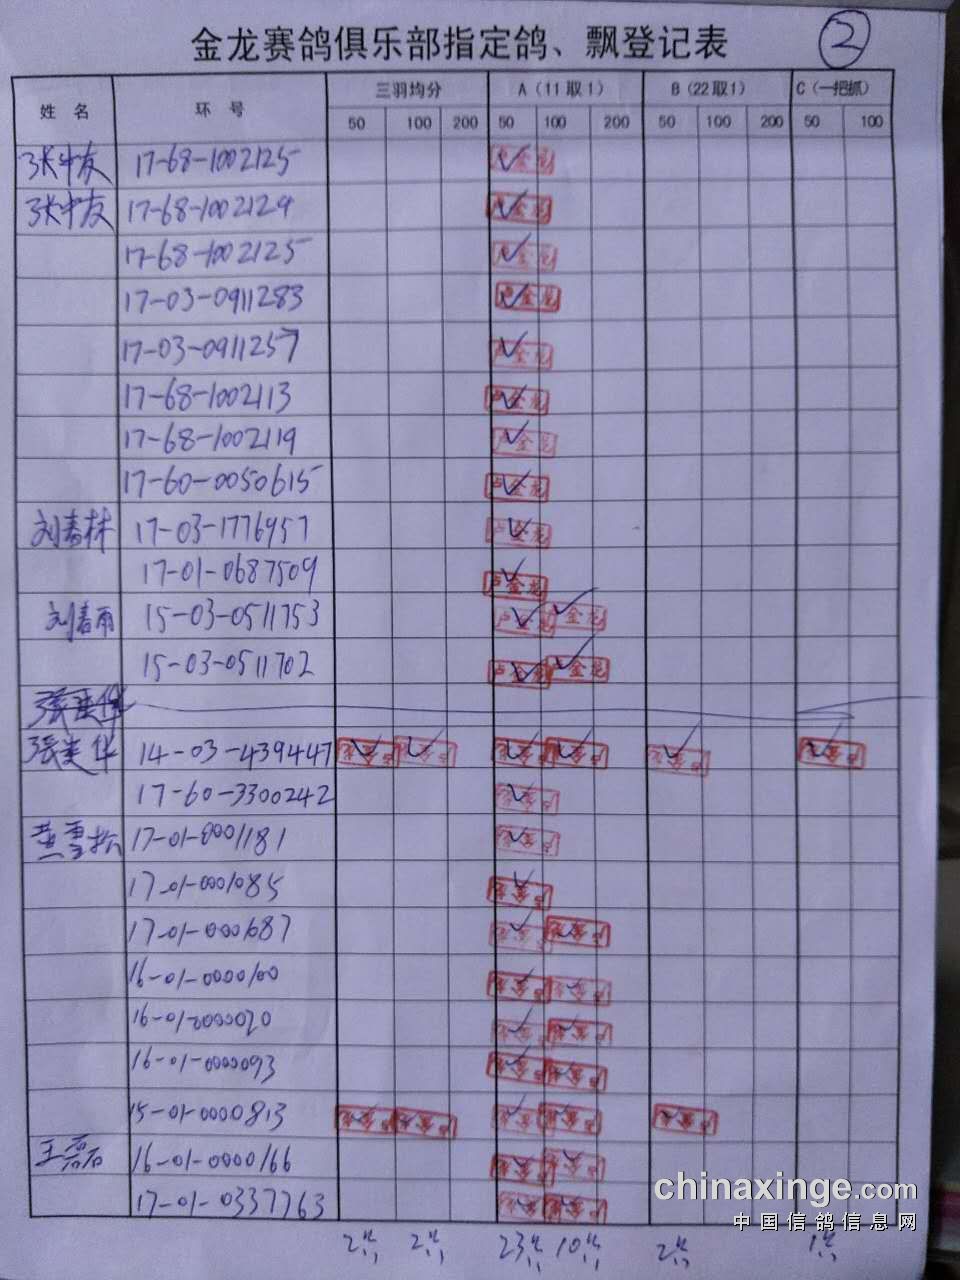 金龙赛鸽俱乐部指定鸽、飘登记表 ②
姓 名 环 号 三羽均分 A（11取1） B（22取1） C（一把抓）
50 100 200 50 100 200 50 100 200 50 100
张中友 17-68-1002125 ✓
张中友 17-68-1002129 ✓
17-68-1002125 ✓
17-03-0911283 ✓
17-03-0911257 ✓
17-68-1002113 ✓
17-68-1002119 ✓
17-60-0050615 ✓
刘春林 17-03-1776957 ✓
17-01-0687509 ✓
刘春雨 15-03-0511753 ✓ ✓
15-03-0511702 ✓ ✓
張建华
張建华 14-03-439447 ✓ ✓ ✓ ✓ ✓ ✓
17-60-3300242 ✓
黄雪松 17-01-0001181 ✓
17-01-0001085 ✓
17-01-0001687 ✓ ✓
16-01-0000100 ✓ ✓
16-01-0000020 ✓ ✓
16-01-0000093 ✓ ✓
15-01-0000813 ✓ ✓ ✓ ✓ ✓
王磊 16-01-0000166 ✓ ✓
17-01-0337763 ✓ ✓
2羽 2羽 23羽 10羽 2羽 1羽
chinaxinge.com
中国信鸽信息网